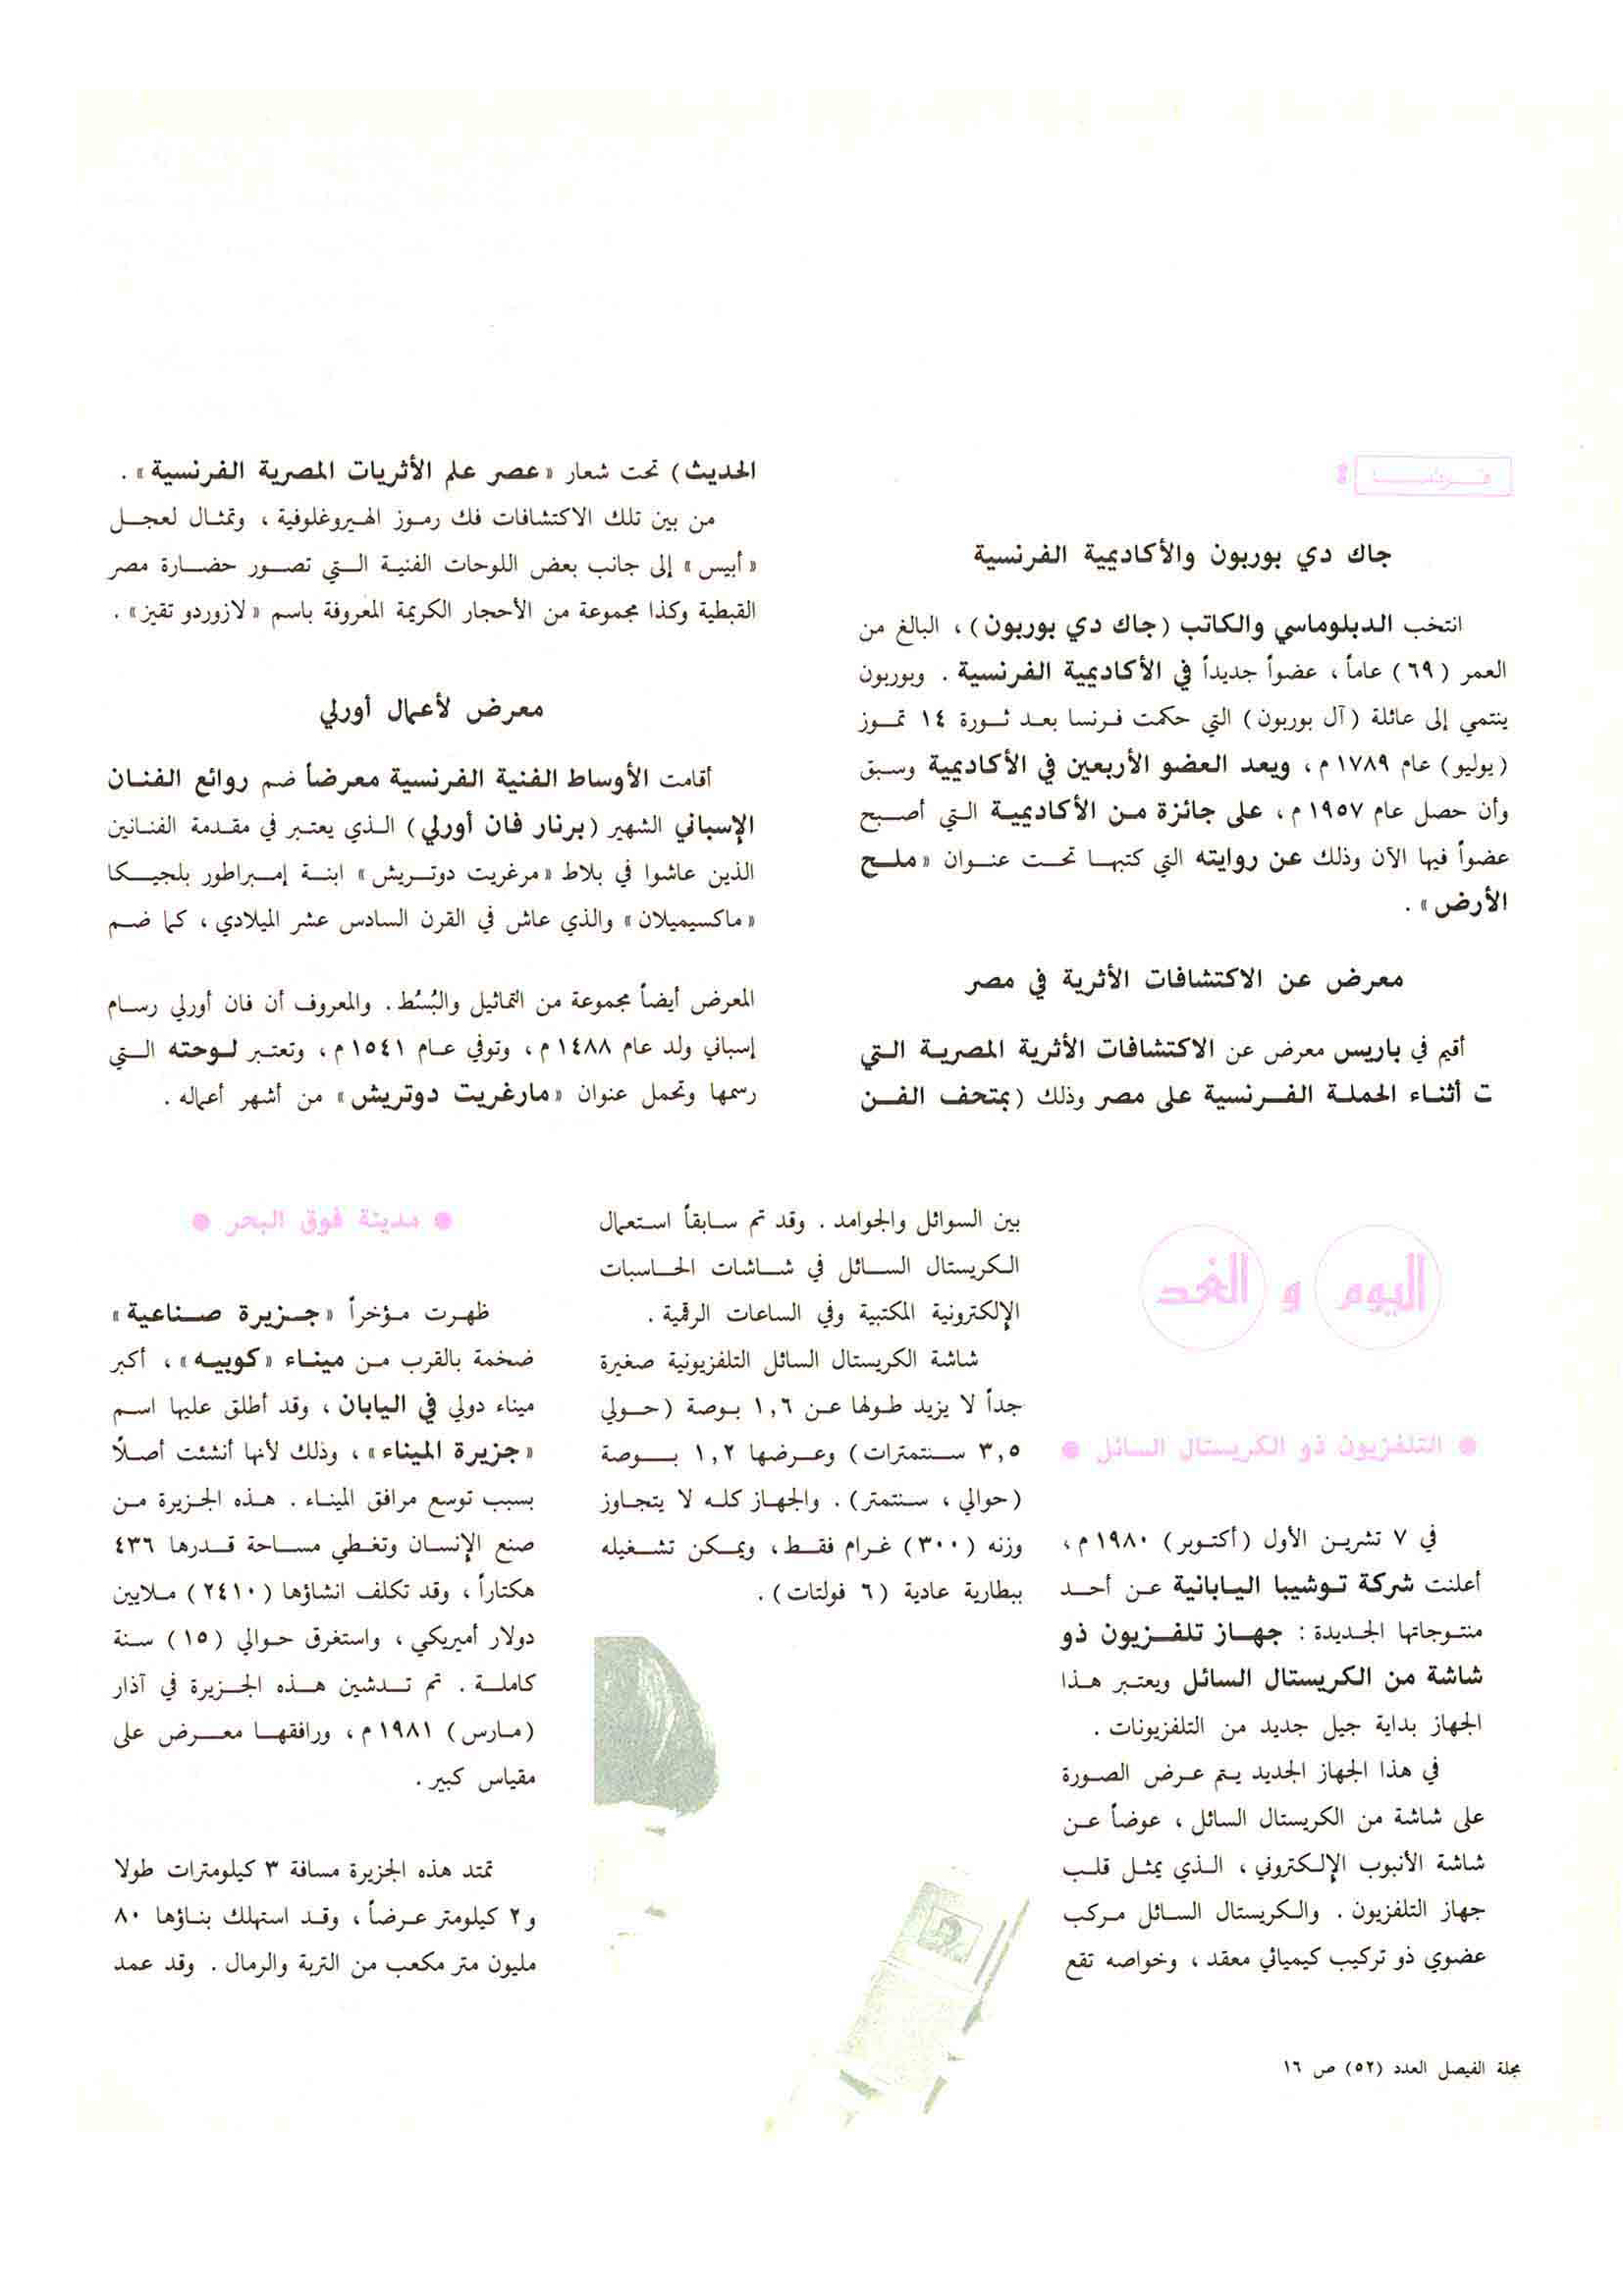 فرنسا :
جاك دي بوربون والأكاديمية الفرنسية
انتخب الدبلوماسي والكاتب (جاك دي بوربون) ، البالغ من
العمر (٦٩) عاماً ، عضواً جديداً في الأكاديمية الفرنسية . وبوربون
ينتمي إلى عائلة (آل بوربون) التي حكمت فرنسا بعد ثورة ١٤ تموز
(يوليو) عام ١٧٨٩ م ، ويعد العضو الأربعين في الأكاديمية وسبق
وأن حصل عام ١٩٥٧ م ، على جائزة من الأكاديمية التي أصبح
عضواً فيها الآن وذلك عن روايته التي كتبها تحت عنوان « ملح
الأرض » .
معرض عن الاكتشافات الأثرية في مصر
أقيم في باريس معرض عن الاكتشافات الأثرية المصرية التي
ت أثناء الحملة الفرنسية على مصر وذلك (بمتحف الفن
الحديث) تحت شعار « عصر علم الأثريات المصرية الفرنسية » .
من بين تلك الاكتشافات فك رموز الهيروغلوفية ، وتمثال لعجل
« أبيس » إلى جانب بعض اللوحات الفنية التي تصور حضارة مصر
القبطية وكذا مجموعة من الأحجار الكريمة المعروفة باسم « لازوردو تقيز » .
معرض لأعمال أورلي
أقامت الأوساط الفنية الفرنسية معرضاً ضم روائع الفنان
الإسباني الشهير (برنار فان أورلي) الذي يعتبر في مقدمة الفنانين
الذين عاشوا في بلاط « مرغريت دوتريش » ابنة إمبراطور بلجيكا
« ماكسيميلان » والذي عاش في القرن السادس عشر الميلادي ، كما ضم
المعرض أيضاً مجموعة من التماثيل والبُسُط . والمعروف أن فان أورلي رسام
إسباني ولد عام ١٤٨٨ م ، وتوفي عام ١٥٤١ م ، وتعتبر لوحته التي
رسمها وتحمل عنوان « مارغريت دوتريش » من أشهر أعماله .
اليوم و الغد
● التلفزيون ذو الكريستال السائل ●
في ٧ تشرين الأول (أكتوبر) ١٩٨٠ م ،
أعلنت شركة توشيبا اليابانية عن أحد
منتوجاتها الجديدة : جهاز تلفزيون ذو
شاشة من الكريستال السائل ويعتبر هذا
الجهاز بداية جيل جديد من التلفزيونات .
في هذا الجهاز الجديد يتم عرض الصورة
على شاشة من الكريستال السائل ، عوضاً عن
شاشة الأنبوب الإلكتروني ، الذي يمثل قلب
جهاز التلفزيون . والكريستال السائل مركب
عضوي ذو تركيب كيميائي معقد ، وخواصه تقع
بين السوائل والجوامد . وقد تم سابقاً استعمال
الكريستال السائل في شاشات الحاسبات
الإلكترونية المكتبية وفي الساعات الرقمية .
شاشة الكريستال السائل التلفزيونية صغيرة
جداً لا يزيد طولها عن ١,٦ بوصة (حولي
٣,٥ سنتمترات) وعرضها ١,٢ بوصة
(حوالي ، سنتمتر) . والجهاز كله لا يتجاوز
وزنه (٣٠٠) غرام فقط ، ويمكن تشغيله
ببطارية عادية (٦ فولتات) .
● مدينة فوق البحر ●
ظهرت مؤخراً « جزيرة صناعية »
ضخمة بالقرب من ميناء « كوبيه » ، أكبر
ميناء دولي في اليابان ، وقد أطلق عليها اسم
« جزيرة الميناء » ، وذلك لأنها أنشئت أصلًا
بسبب توسع مرافق الميناء . هذه الجزيرة من
صنع الإنسان وتغطي مساحة قدرها ٤٣٦
هكتاراً ، وقد تكلف انشاؤها (٢٤١٠) ملايين
دولار أميريكي ، واستغرق حوالي (١٥) سنة
كاملة . تم تدشين هذه الجزيرة في آذار
(مارس) ١٩٨١ م ، ورافقها معرض على
مقياس كبير .
تمتد هذه الجزيرة مسافة ٣ كيلومترات طولا
و٢ كيلومتر عرضاً ، وقد استهلك بناؤها ٨٠
مليون متر مكعب من التربة والرمال . وقد عمد
مجلة الفيصل العدد (٥٢) ص ١٦